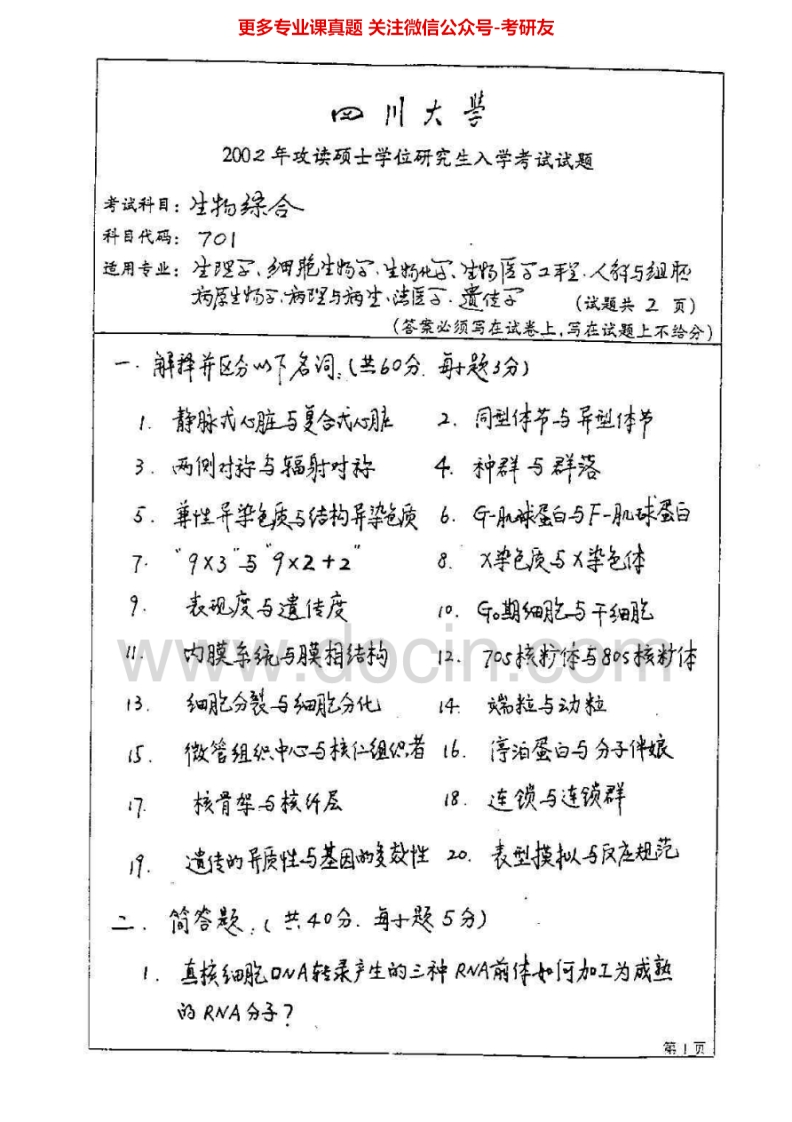 更多专业课真题 关注微信公众号-考研友
四川大学
2002年攻读硕士学位研究生入学考试试题
考试科目：生物综合
科目代码：701
适用专业：生理学、细胞生物学、生物化学、生物医学工程、人解与组胚
病原生物学、病理与病生、法医学、遗传学 （试题共 2 页）
（答案必须写在试卷上，写在试题上不给分）
一、解释并区分以下名词：（共60分．每小题3分）
1. 静脉式心脏与复合式心脏 2. 同型体节与异型体节
3. 两侧对称与辐射对称 4. 种群与群落
5. 兼性异染色质与结构异染色质 6. G-肌球蛋白与F-肌球蛋白
7. "9×3"与"9×2+2" 8. X染色质与X染色体
9. 表现度与遗传度 10. G₀期细胞与干细胞
11. 内膜系统与膜相结构 12. 70S核籿体与80S核籿体
13. 细胞分裂与细胞分化 14. 端粒与动粒
15. 微管组织中心与核仁组织者 16. 停泊蛋白与分子伴娘
17. 核骨架与核纤层 18. 连锁与连锁群
19. 遗传的异质性与基因的多效性 20. 表型摸拟与反应规范
二．简答题：（共40分．每小题5分）
1. 真核细胞DNA转录产生的三种RNA前体如何加工为成熟
的RNA分子？
第 1 页
www.docin.com